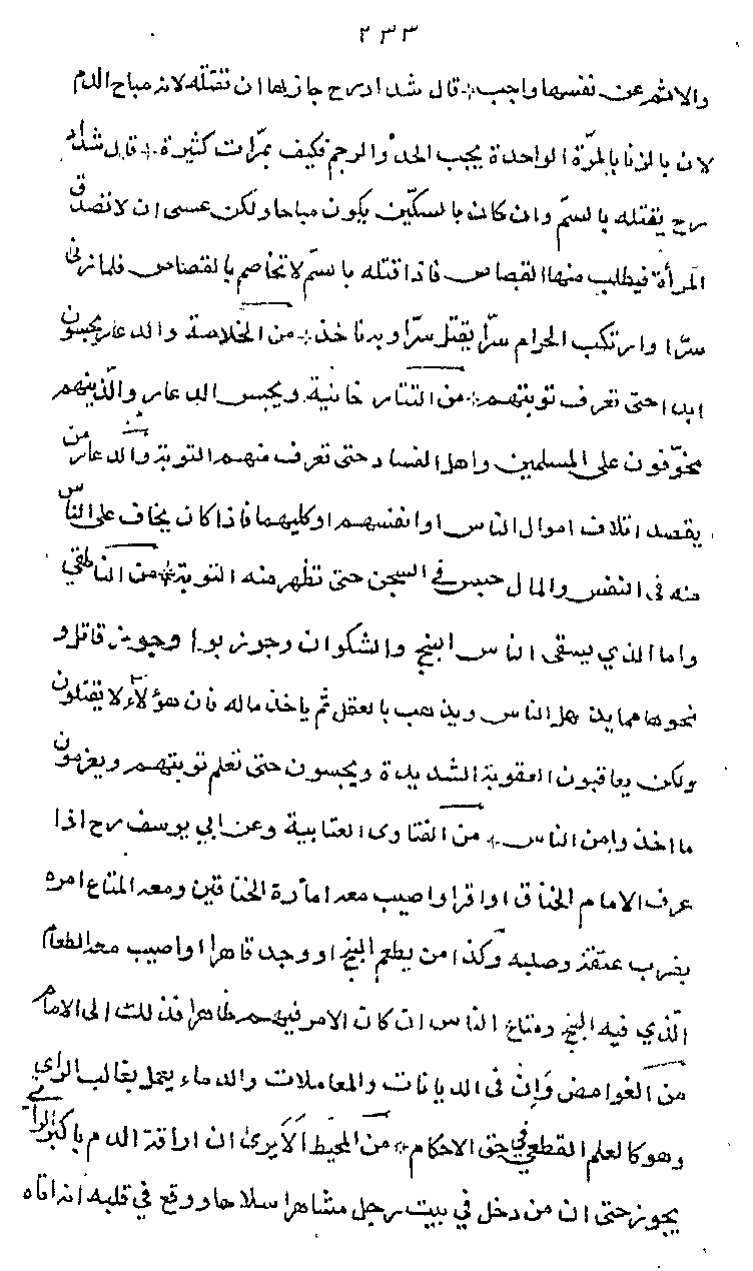 ٢٣٣
والاثم عن نفسها واجب قال شداد رح جاز لها ان تقتله لانه مباح الدم
لان بالزنا بالمرّة الواحدة يجب الحدّ والرجم فكيف بمرّات كثيرة قال شداد
رح يقتله بالسمّ وان كان بالسكّين يكون مباحا ولكن عسى ان لا تصدق
المرأة فيطلب منها القصاص فاذا قتله بالسمّ لا تخاصم بالقصاص فلما زنى
سرّا وارتكب الحرام سرّا يقتل سرّا وبه ناخذ من الخلاصة والدعار يحبسون
ابدا حتى تعرف توبتهم من التتار خانية ويحبس الدعار والّذينهم
مخوّفون على المسلمين واهل الفساد حتى تعرف منهم التوبة والدعار من
يقصد اتلاف اموال الناس او انفسهم او كليهما فاذا كان يخاف على الناس
منه فى النفس والمال حبس في السجن حتى تظهر منه التوبة من الناطفي
واما الذي يسقى الناس البنج والشكوان وجوز بوا وجويز قاتل و
نحوها مما يذهل الناس ويذهب بالعقل ثمّ ياخذ ماله فان هؤلاء لا يقتلون
ولكن يعاقبون العقوبة الشديدة ويحبسون حتى تعلم توبتهم ويغرمون
ما اخذوا من الناس من الفتاوى العتابية وعن ابي يوسف رح اذا
عرف الامام الخناق او اقر او اصيب معه امارة الخناقين ومعه المتاع امره
بضرب عنقه وصلبه وكذا من يطعم البنج او وجد قاهرا او اصيب معه الطعام
الّذي فيه البنج ومتاع الناس ان كان الامر فيهم ظاهرا فذلك الى الامام
من الغوامض وان فى الديانات والمعاملات والدماء يعمل بغالب الراى
وهو كالعلم القطعي في حق الاحكام من المحيط الا يرى ان اراقة الدم باكبر الراى
يجوز حتى ان من دخل في بيت رجل مشاهرا سلاحا ووقع في قلبه انه اتاه